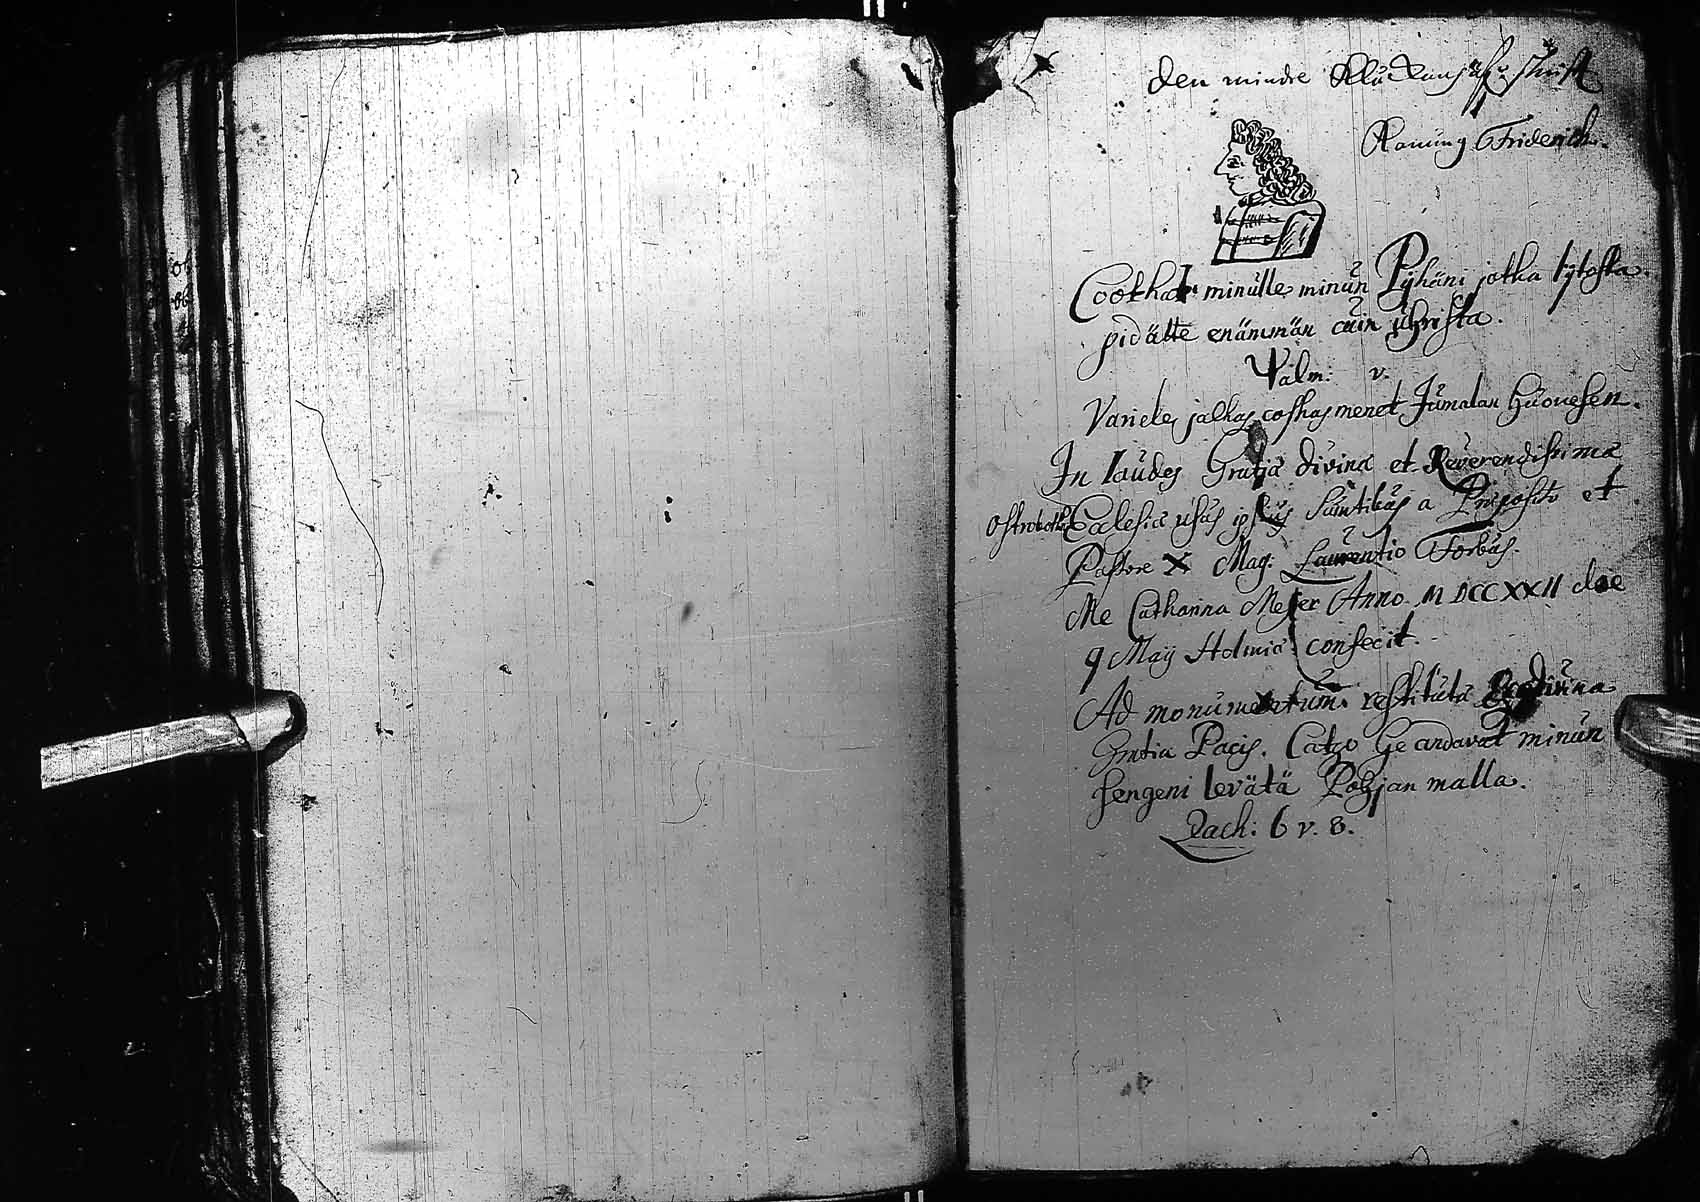 den mindre
Konung Friderich.
Cootkat minulle minun Pyhäni jotka lijtosta
pidätte enämmän cuin uhrista.
Psalm: v.
Variele jalkas coskas menet Jumalan Huonesen.
In laudes Gratiä divinä et Reverendissimä
Ostrobotn Ecclesiä usus ipsius sumtibus a Präposito et
Pastore Mag: Laurentio Forbus.
Me Catharina Meyer Anno MDCCXXII die
9 Maij Holmiä confecit.
Ad monumentum restituta divina
Gratia Pacis. Catzo He andavat minun
hengeni levätä Pohjan malla.
Zach: 6 v. 8.